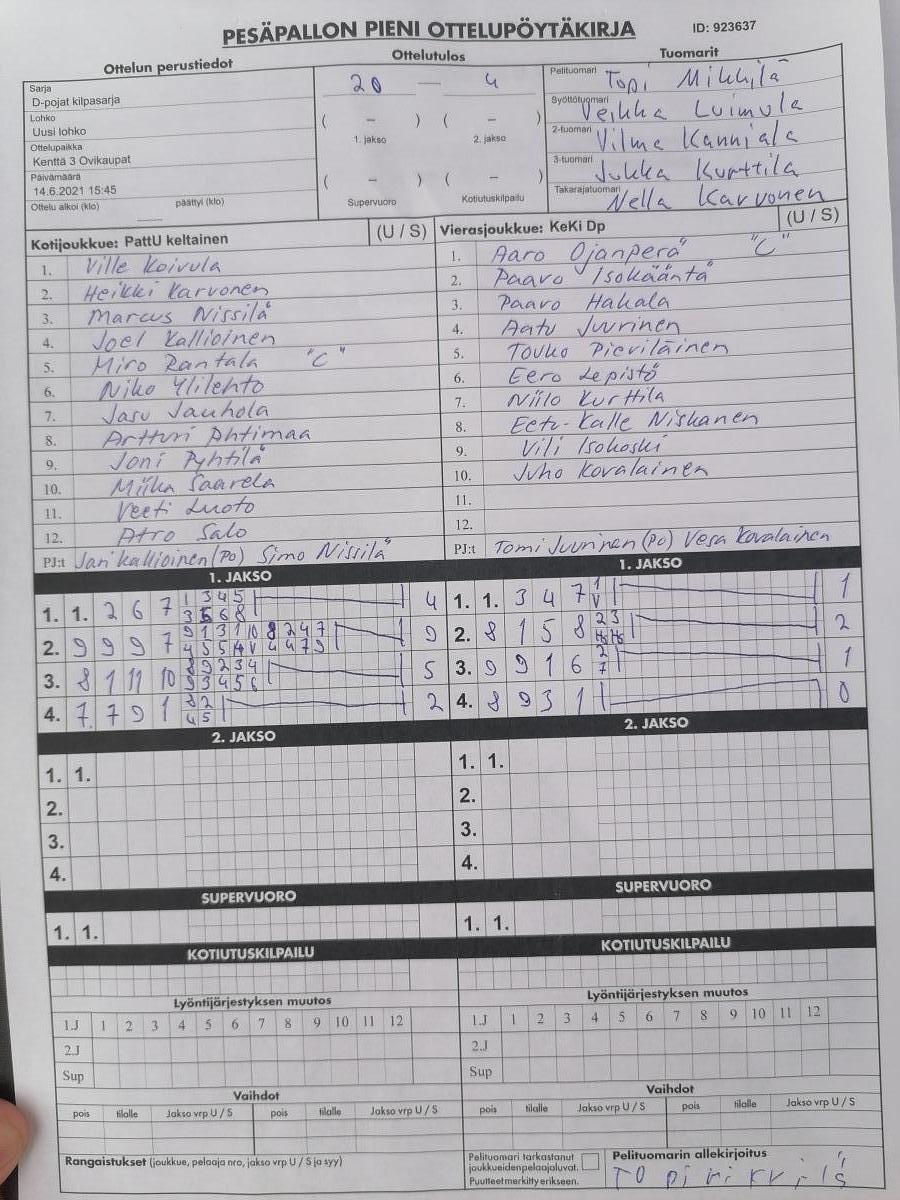 PESÄPALLON PIENI OTTELUPÖYTÄKIRJA
ID: 923637
Ottelun perustiedot
Ottelutulos
Tuomarit
Sarja
D-pojat kilpasarja
Lohko
Uusi lohko
Ottelupaikka
Kenttä 3 Ovikaupat
Päivämäärä
14.6.2021 15:45
Ottelu alkoi (klo) päättyi (klo)
20 — 4
( – ) ( – )
1. jakso 2. jakso
( – ) ( – )
Supervuoro Kotiutuskilpailu
Pelituomari Topi Mikkilä
Syöttötuomari Veikka Luimula
2-tuomari Vilma Kanniala
3-tuomari Jukka Kurttila
Takarajatuomari Nella Karvonen
Kotijoukkue: PattU keltainen (U / S)
1. Ville Koivula
2. Heikki Karvonen
3. Marcus Nissilä
4. Joel Kallioinen
5. Miro Rantala "C"
6. Niko Ylilehto
7. Jasu Jauhola
8. Artturi Ahtimaa
9. Joni Pyhtilä
10. Miika Saarela
11. Veeti Luoto
12. Atro Salo
PJ:t Jari Kallioinen (PO) Simo Nissilä
Vierasjoukkue: KeKi Dp (U / S)
1. Aaro Ojanperä "C"
2. Paavo Isokääntä
3. Paavo Hakala
4. Aatu Juurinen
5. Touko Pieviläinen
6. Eero Lepistö
7. Niilo Kurttila
8. Eetu-Kalle Niskanen
9. Vili Isokoski
10. Juho Kovalainen
11.
12.
PJ:t Tomi Juurinen (PO) Vesa Kovalainen
1. JAKSO
1. 1. 2 6 7 1 3 4 5 4
3 5 6 8
2. 9 9 9 7 9 1 3 1 10 8 2 4 7 9
3. 8 1 11 10 8 9 2 3 4 5
9 3 4 5 6
4. 7 7 9 1 8 2 2
4 5
1. JAKSO
1. 1. 3 4 7 1 1
V
2. 8 1 5 8 2 3 2
3. 9 9 1 6 2 1
7
4. 8 9 3 1 0
2. JAKSO
1. 1.
2.
3.
4.
2. JAKSO
1. 1.
2.
3.
4.
SUPERVUORO
1. 1.
SUPERVUORO
1. 1.
KOTIUTUSKILPAILU
KOTIUTUSKILPAILU
Lyöntijärjestyksen muutos
1.J 1 2 3 4 5 6 7 8 9 10 11 12
2.J
Sup
Lyöntijärjestyksen muutos
1.J 1 2 3 4 5 6 7 8 9 10 11 12
2.J
Sup
Vaihdot
pois tilalle Jakso vrp U / S pois tilalle Jakso vrp U / S
Vaihdot
pois tilalle Jakso vrp U / S pois tilalle Jakso vrp U / S
Rangaistukset (joukkue, pelaaja nro, jakso vrp U / S ja syy)
Pelituomari tarkastanut
joukkueidenpelaajaluvat.
Puutteet merkitty erikseen.
Pelituomarin allekirjoitus